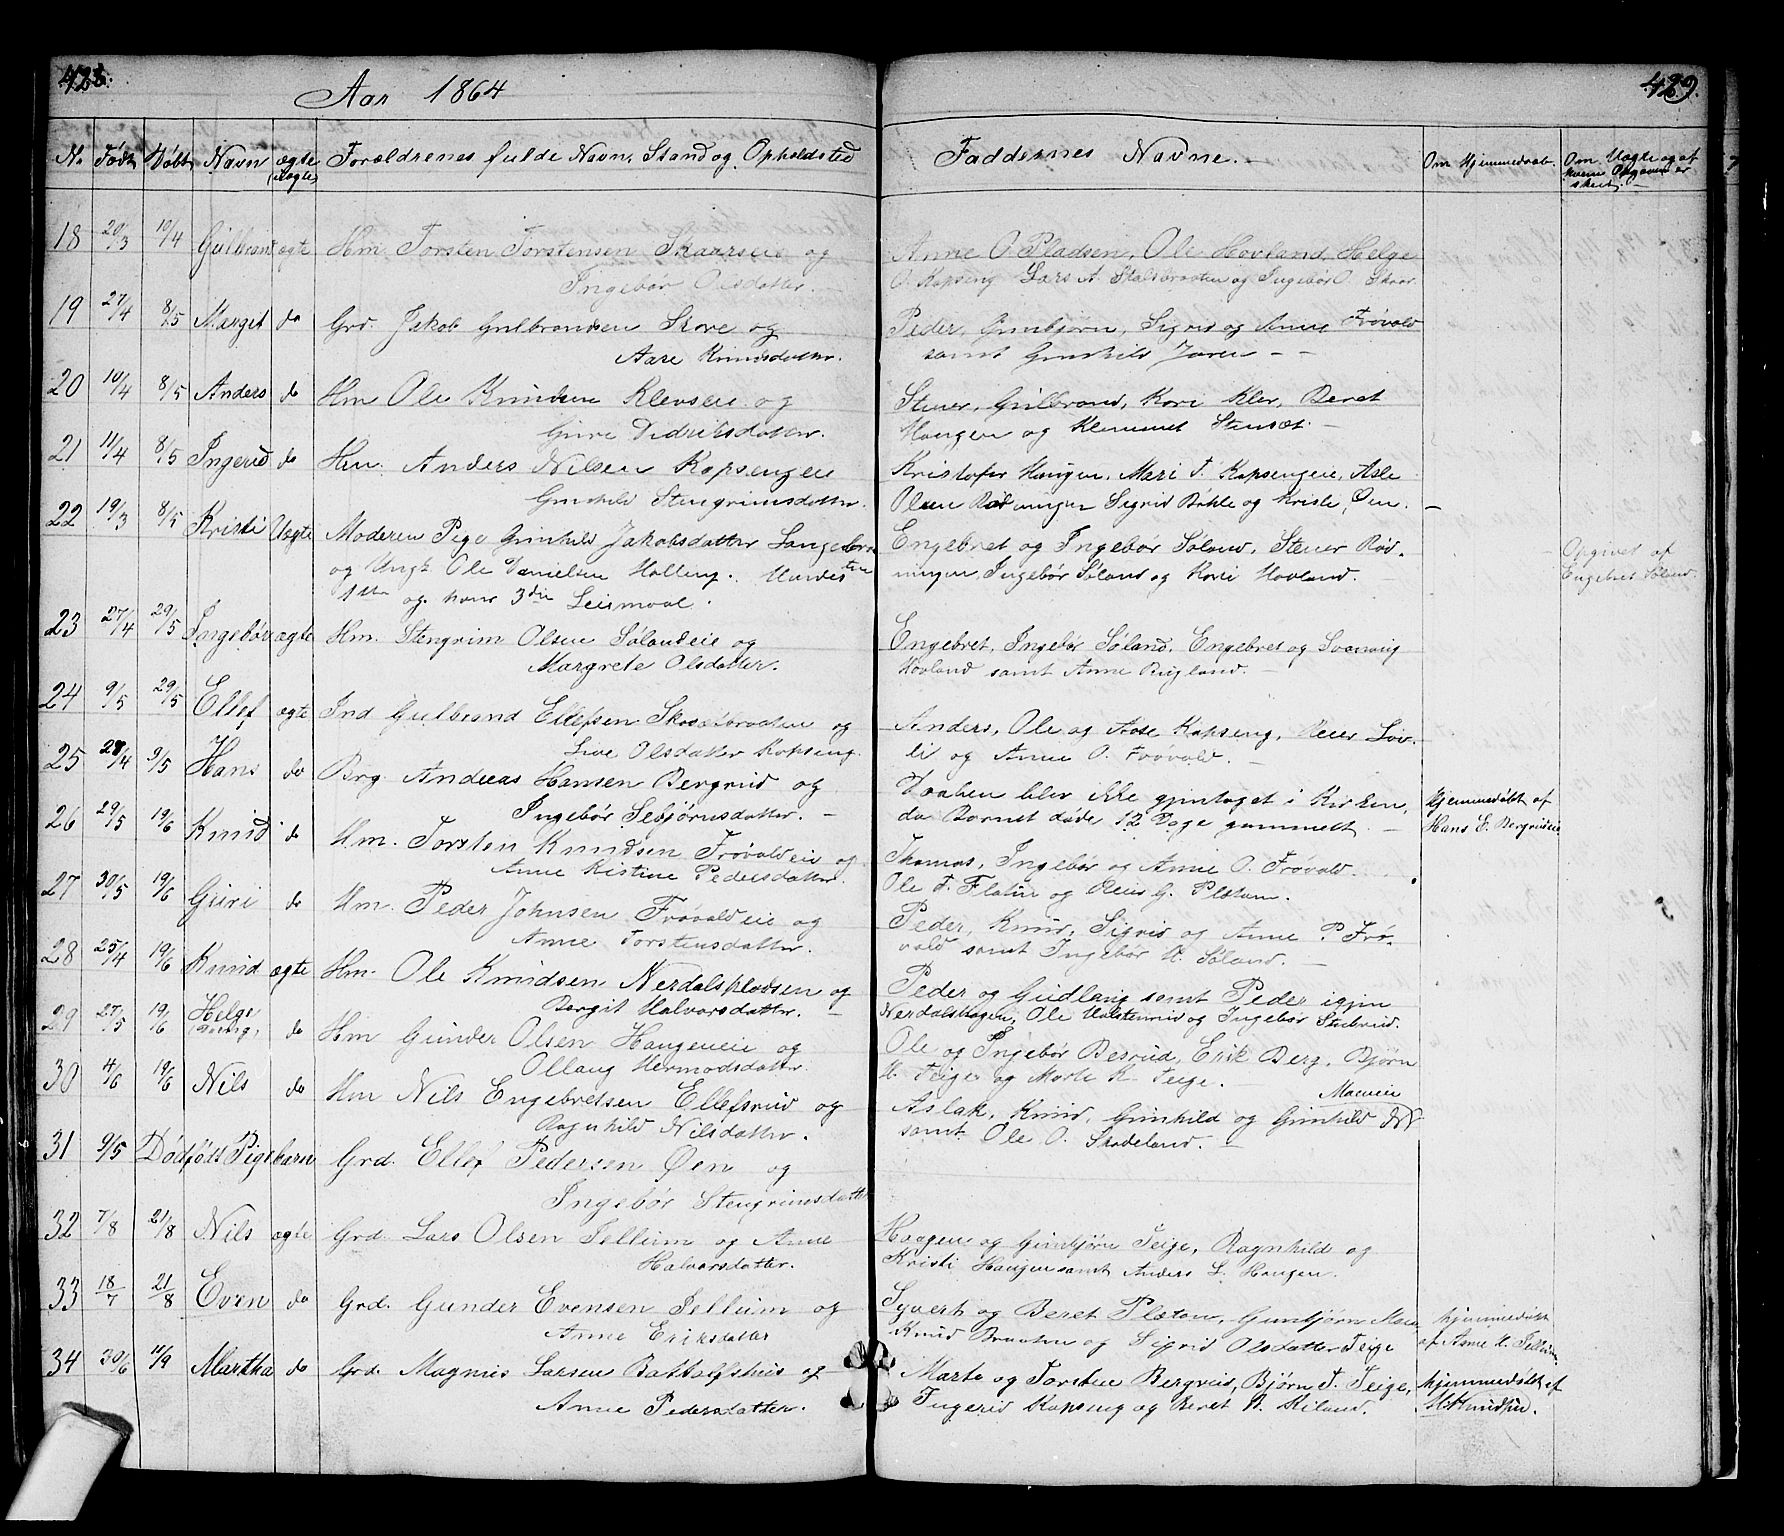 428.
Aar 1864
No Født Døbt Navn ægte Forældrenes fulde Navn, Stand og Opholdsted
(uægte)
18 20/3 10/4 Gulbrand ægte Hm Torsten Torstensen Skaarseie og
Ingebør Olsdatter.
19 27/4 8/5 Marget do Grd. Jakob Gulbrandsen Skore og
Aase Knudsdatter.
20 10/4 8/5 Anders do Hm Ole Knudsen Klevseie og
Guro Didriksdatter.
21 11/4 8/5 Ingerid do Hm. Anders Nilsen Kopsengeie
Gunhild Stengrimsdatter.
22 19/3 8/5 Kristi Uægte Moderen Pige Gunhild Jakobsdatter Langebraa
ten
og Ungk Ole Danielsen Halling. Hendes
1ste og hans 3die Leiermaal.
23 27/4 29/5 Ingebør ægte Hm. Stengrim Olsen Sølandeie og
Margrete Olsdatter.
24 9/5 29/5 Ellef ægte Ind Gulbrand Ellefsen Skosætbraaten og
Live Olsdatter Kopseng.
25 28/4 9/5 Hans do Brg. Andreas Hansen Bergrud og
Ingebør Sebjørnsdatter.
26 29/5 19/6 Knud do Hm. Torsten Knudsen Frøvoldeie og
Anne Kistine Pedersdatter.
27 30/5 19/6 Guri do Hm. Peder Johnsen Frøvoldeie og
Anne Torstensdatter.
28 25/4 19/6 Knud ægte Hm. Ole Knudsen Nerdalspladsen og
Bergit Halvorsdatter.
29 27/5 19/6 Helge do Hm Gunder Olsen Haugeneie og
Ollaug Hermodsdatter.
30 4/6 19/6 Nils do Hm Nils Engebretsen Ellefsrud og
Ragnhild Nilsdatter.
31 9/5 Dødfødt Pigebarn Grd. Ellef Pedersen Øen og
Ingebør Stengrimsdatter
32 7/8 21/8 Nils ægte Grd. Lars Olsen Jelleim og Anne
Halvorsdatter.
33 18/7 21/8 Even do Grd. Gunder Evensen Jelleim og
Anne Eriksdatter
34 30/6 11/9 Martha do Grd. Magnus Larsen Battalfshus og
Anne Pedersdatter.
429.
Faddernes Navne. Om Hjemmedaab. Om Uægte og af
hvem Opgaven er
skeet.
Anne O. Pladsen, Ole Hovland, Helge
O. Kopseng Lars A. Stalsbraaten og Ingebør O. Skaar.
Peder, Gunbjørn, Sigrid og Anne Frøvold
samt Gunhild Jøren
Stener, Gulbrand, Kari Klev, Beret
Haugen og Klemmet Stensæt.
Kristofer Haugen, Mari T. Kopsengeie, Asle
Olsen Rødningen Sigrid Bøhle og Kristi Øen.
Engebret og Ingebør Søland, Stener Rød- Opgivet af
ningen, Ingebør Søland og Kari Hovland. Engebret Søland.
Engebret, Ingebør Søland, Engebret og Svanaug
Hovland samt Anne Rugland.
Anders, Ole og Aase Kopseng, Reier Løv-
li og Anne O. Frøvold.
Daaben blev ikke gjentaget i Kirken, Hjemmedøbt af
da Barnet døde 12 Dage gammelt. Hans E. Bergrudeie
Thomas, Ingebør og Anne O. Frøvold.
Ole T. Flatin og Reier G. Plåtom.
Peder, Knud, Sigrid og Anne P. Frø-
vold samt Ingebør K. Søland.
Peder og Gudlaug samt Peder igjen
Nerdalshagen, Ole Halstenrud og Ingebør Stubrud.
Ole og Ingebør Besrud, Erik Berg, Bjørn
H. Teige og Marte K. Teige.
Aslak, Knud, Gunhild og Gunhild
samt Ole O. Skadeland.
Haagen og Gunbjørn Teige, Ragnhild og
Kristi Haugen samt Anders L. Haugen.
Syvert og Beret Plåtom, Gunbjørn Moen hjemmedøbt
Knud Braaten og Sigrid Olsdatter Teige af Anne H. Jelleim.
Marte og Torsten Bergrud, Bjørn T. Teige, hjemmedøbt af
Ingerid Kopseng og Beret A. Kiland. H. Knudsen.